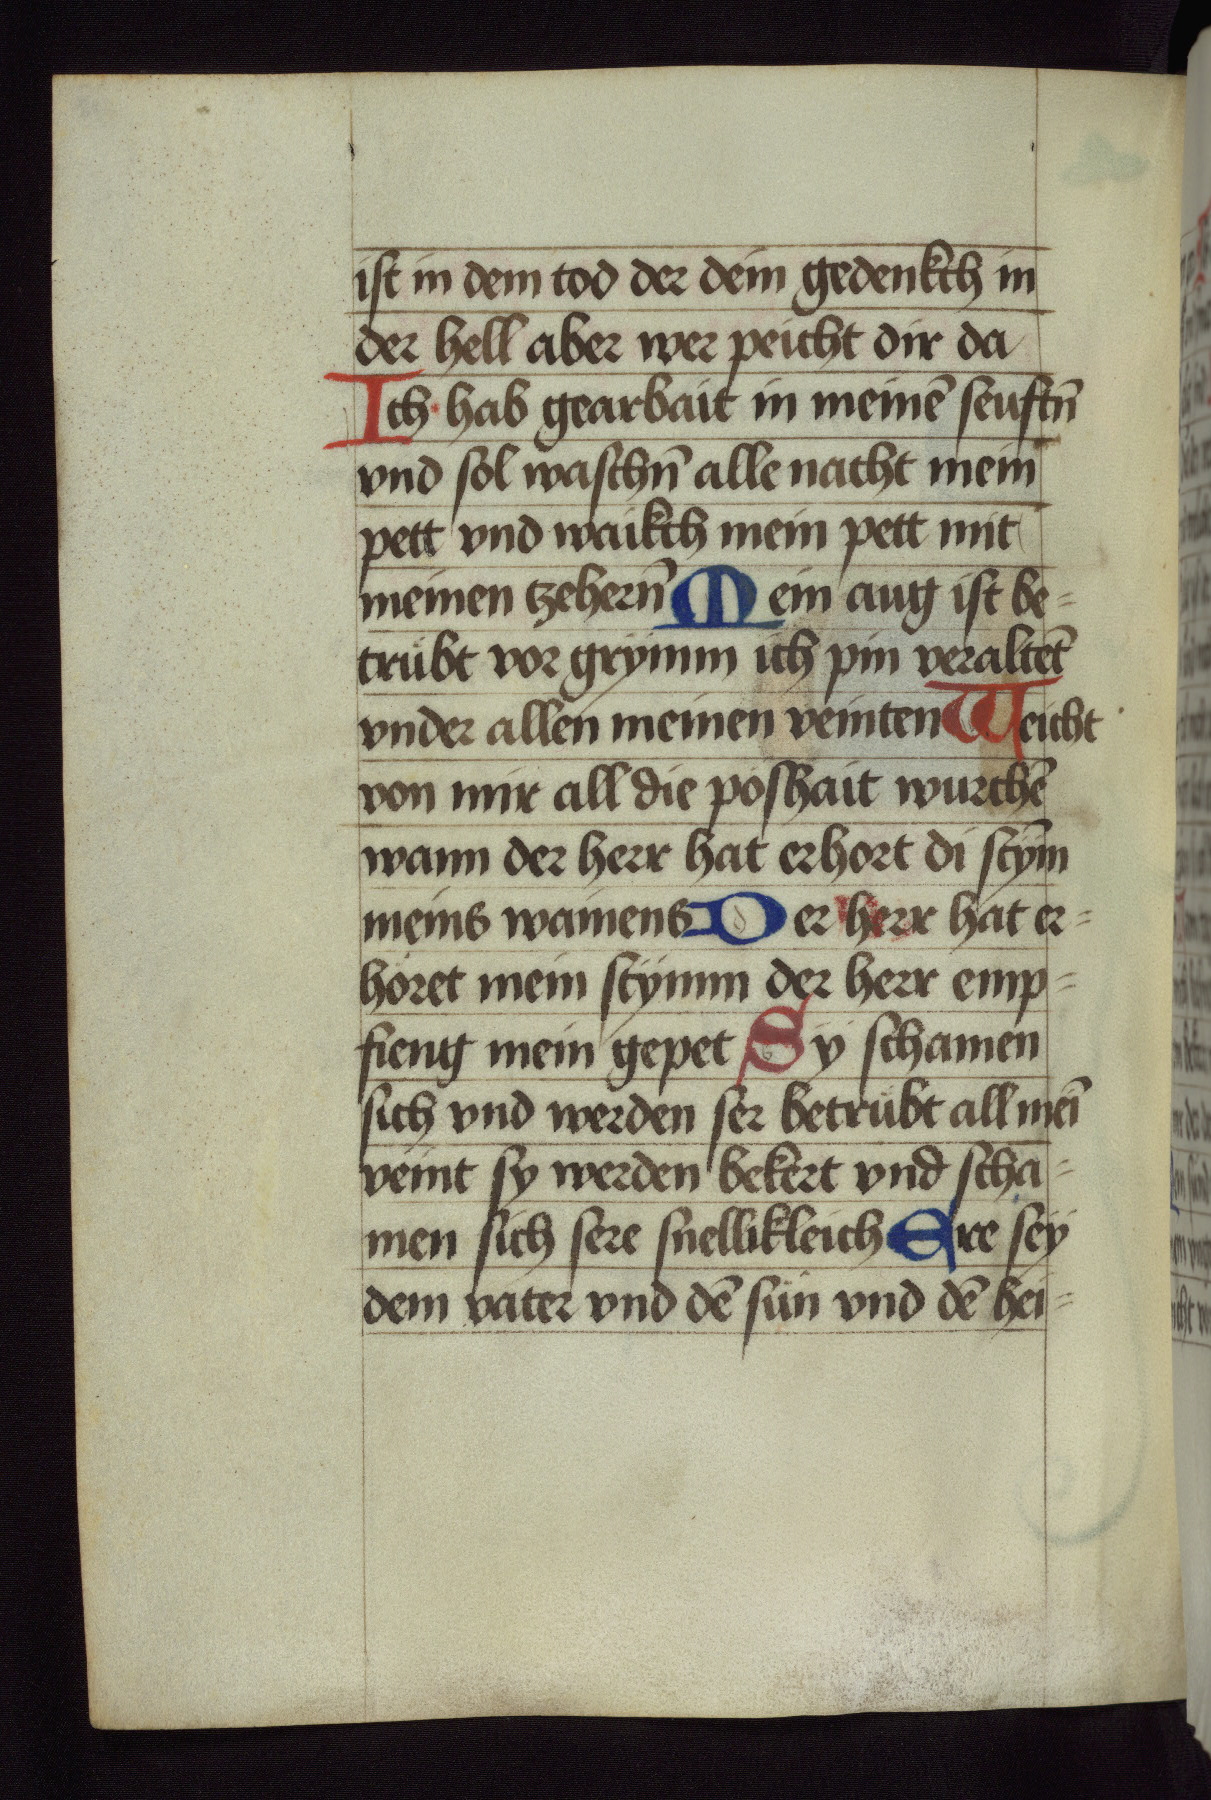 ist in dem tod der dein gedenkch in
der hell aber wer peicht dir da
Ich hab gearbait in meinē seuftn̄
vnd sol waschn̄ alle nacht mein
pett vnd waikch mein pett mit
meinen tzehern̄ Mein aug ist be=
trübt vor grymm ich pin veraltet̄
vnder allen meinen veinten Weicht
von mir all die poshait wurchē
wann der herr hat erhort di stȳm
meins wainens Der herr hat er=
höret mein stymm der herr emp=
fieng mein gepet Sy schamen
sich vnd werden ser betrübt all meī
veint sy werden bekert vnd scha=
men sich sere snellikleich Ere sey
dem vater vnd dē sun vnd dē hei=